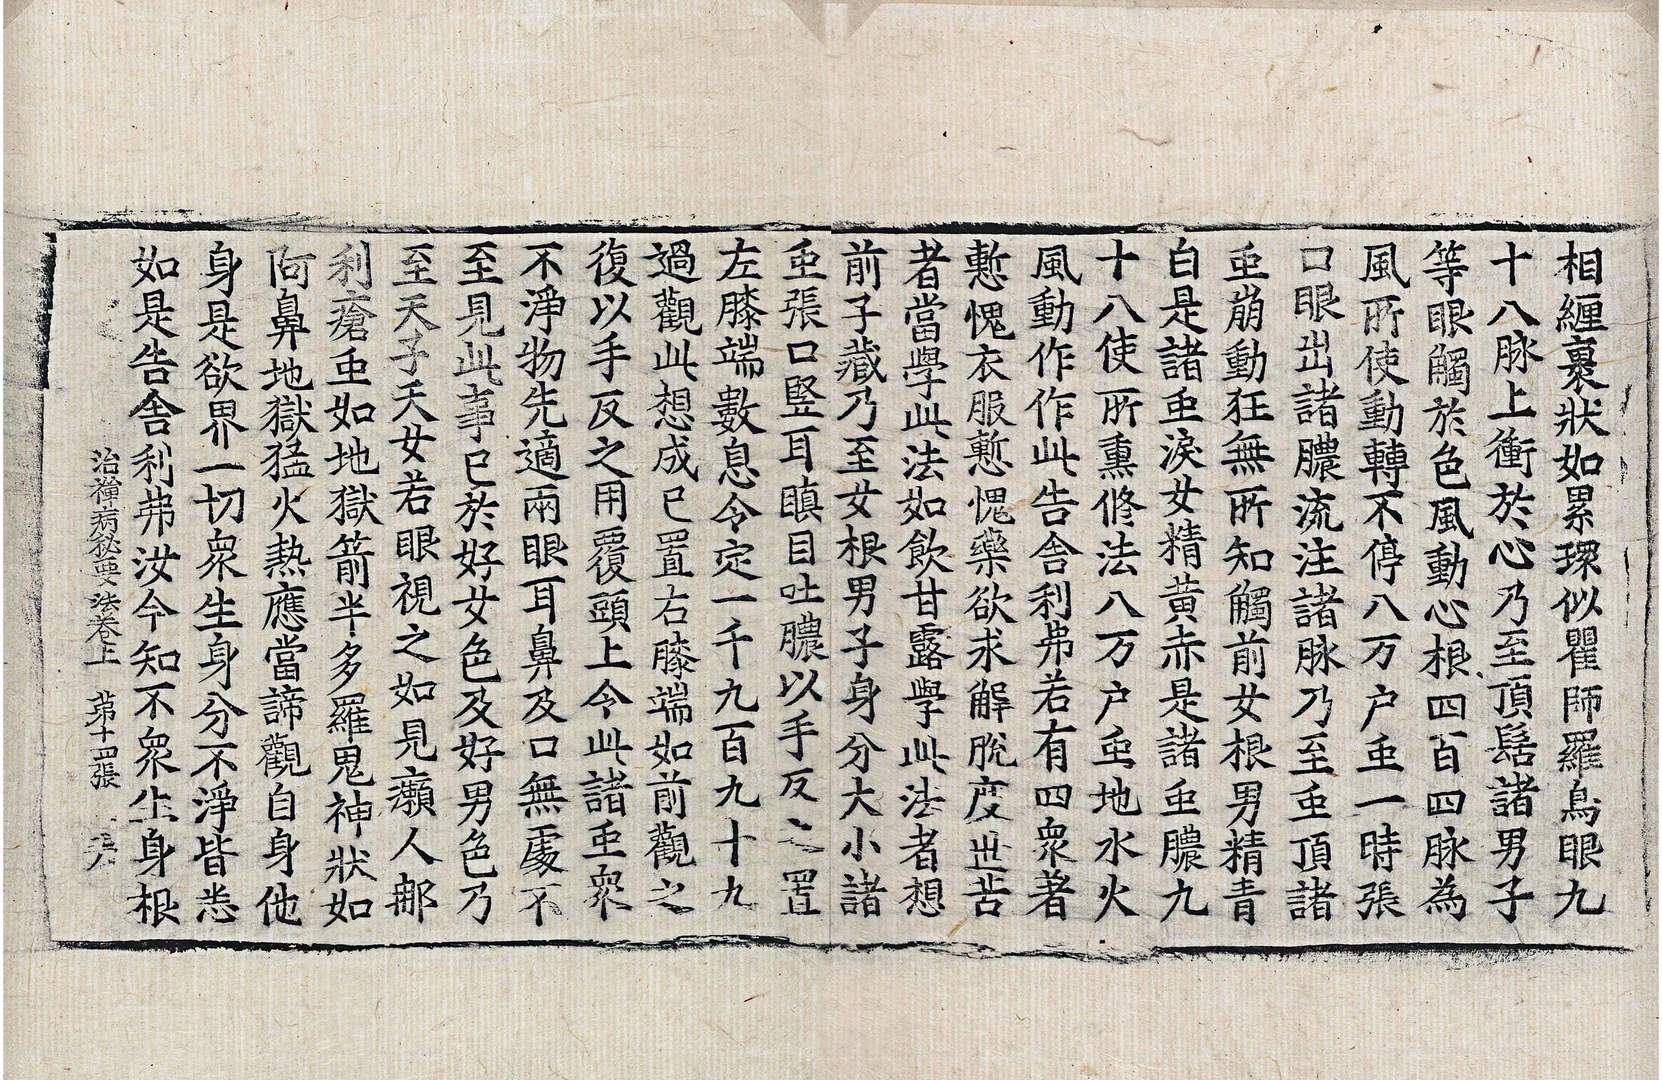 相纏裹狀如累環似瞿師羅鳥眼九
十八脉上衝於心乃至頂髻諸男子
等眼觸於色風動心根四百四脉為
風所使動轉不停八万户䖝一時張
口眼出諸膿流注諸脉乃至䖝頂諸
䖝崩動狂無所知觸前女根男精青
白是諸䖝淚女精黄赤是諸䖝膿九
十八使所熏修法八万户䖝地水火
風動作作此告舍利弗若有四衆著
慙愧衣服慙愧藥欲求解脫度世苦
者當學此法如飲甘露學此法者想
前子藏乃至女根男子身分大小諸
䖝張口竪耳瞋目吐膿以手反之置
左膝端數息令定一千九百九十九
過觀此想成已置右膝端如前觀之
復以手反之用覆頭上令此諸䖝衆
不淨物先適兩眼耳鼻及口無處不
至見此事已於好女色及好男色乃
至天子天女若眼視之如見癩人那
利瘡䖝如地獄箭半多羅鬼神狀如
阿鼻地獄猛火熱應當諦觀自身他
身是欲界一切衆生身分不淨皆悉
如是告舍利弗汝今知不衆生身根
治禪病秘要法卷上 苐十四張